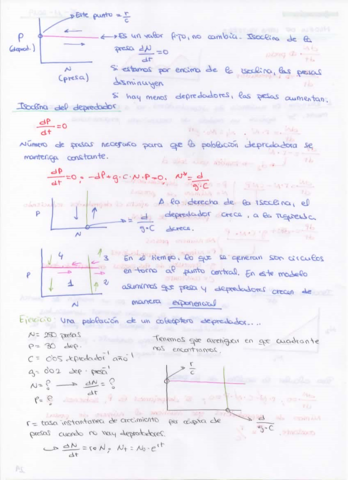 Este punto = r/c
P (depred.)
N (presa)
Es un valor fijo, no cambia. Isoclina de la
presa dN/dt = 0
Si estamos por encima de la isoclina, las presas
disminuyen
Si hay menos depredadores, las presas aumentan.
Isoclina del depredador
dP/dt = 0
Número de presas necesario para que la población depredadora se
mantenga constante.
dP/dt = 0; -dP + g·C·N·P = 0; N* = d/g·C
P
N
= d/g·C
A la derecha de la isoclina, el
depredador crece, a la izquierda
decrece.
P
N
4
3
1
2
En el tiempo, lo que se aprecian son círculos
en torno al punto central. En este modelo
asumimos que presa y depredadores crecen de
manera exponencial
Ejemplo: Una población de un coleóptero depredador....
N = 250 presas
P = 30 dep.
C = 0'05 depredador⁻¹ año⁻¹
g = 0'02 dep · presa⁻¹
N = ? → dN/dt = ?
P = ?
Tenemos que averiguar en qe cuadrante
nos encontramos
r/c
d/g·C
r = tasa instantánea de crecimiento per cápita de
presas cuando no hay depredadores
dN/dt = r·N; Nt = N₀·e^rt